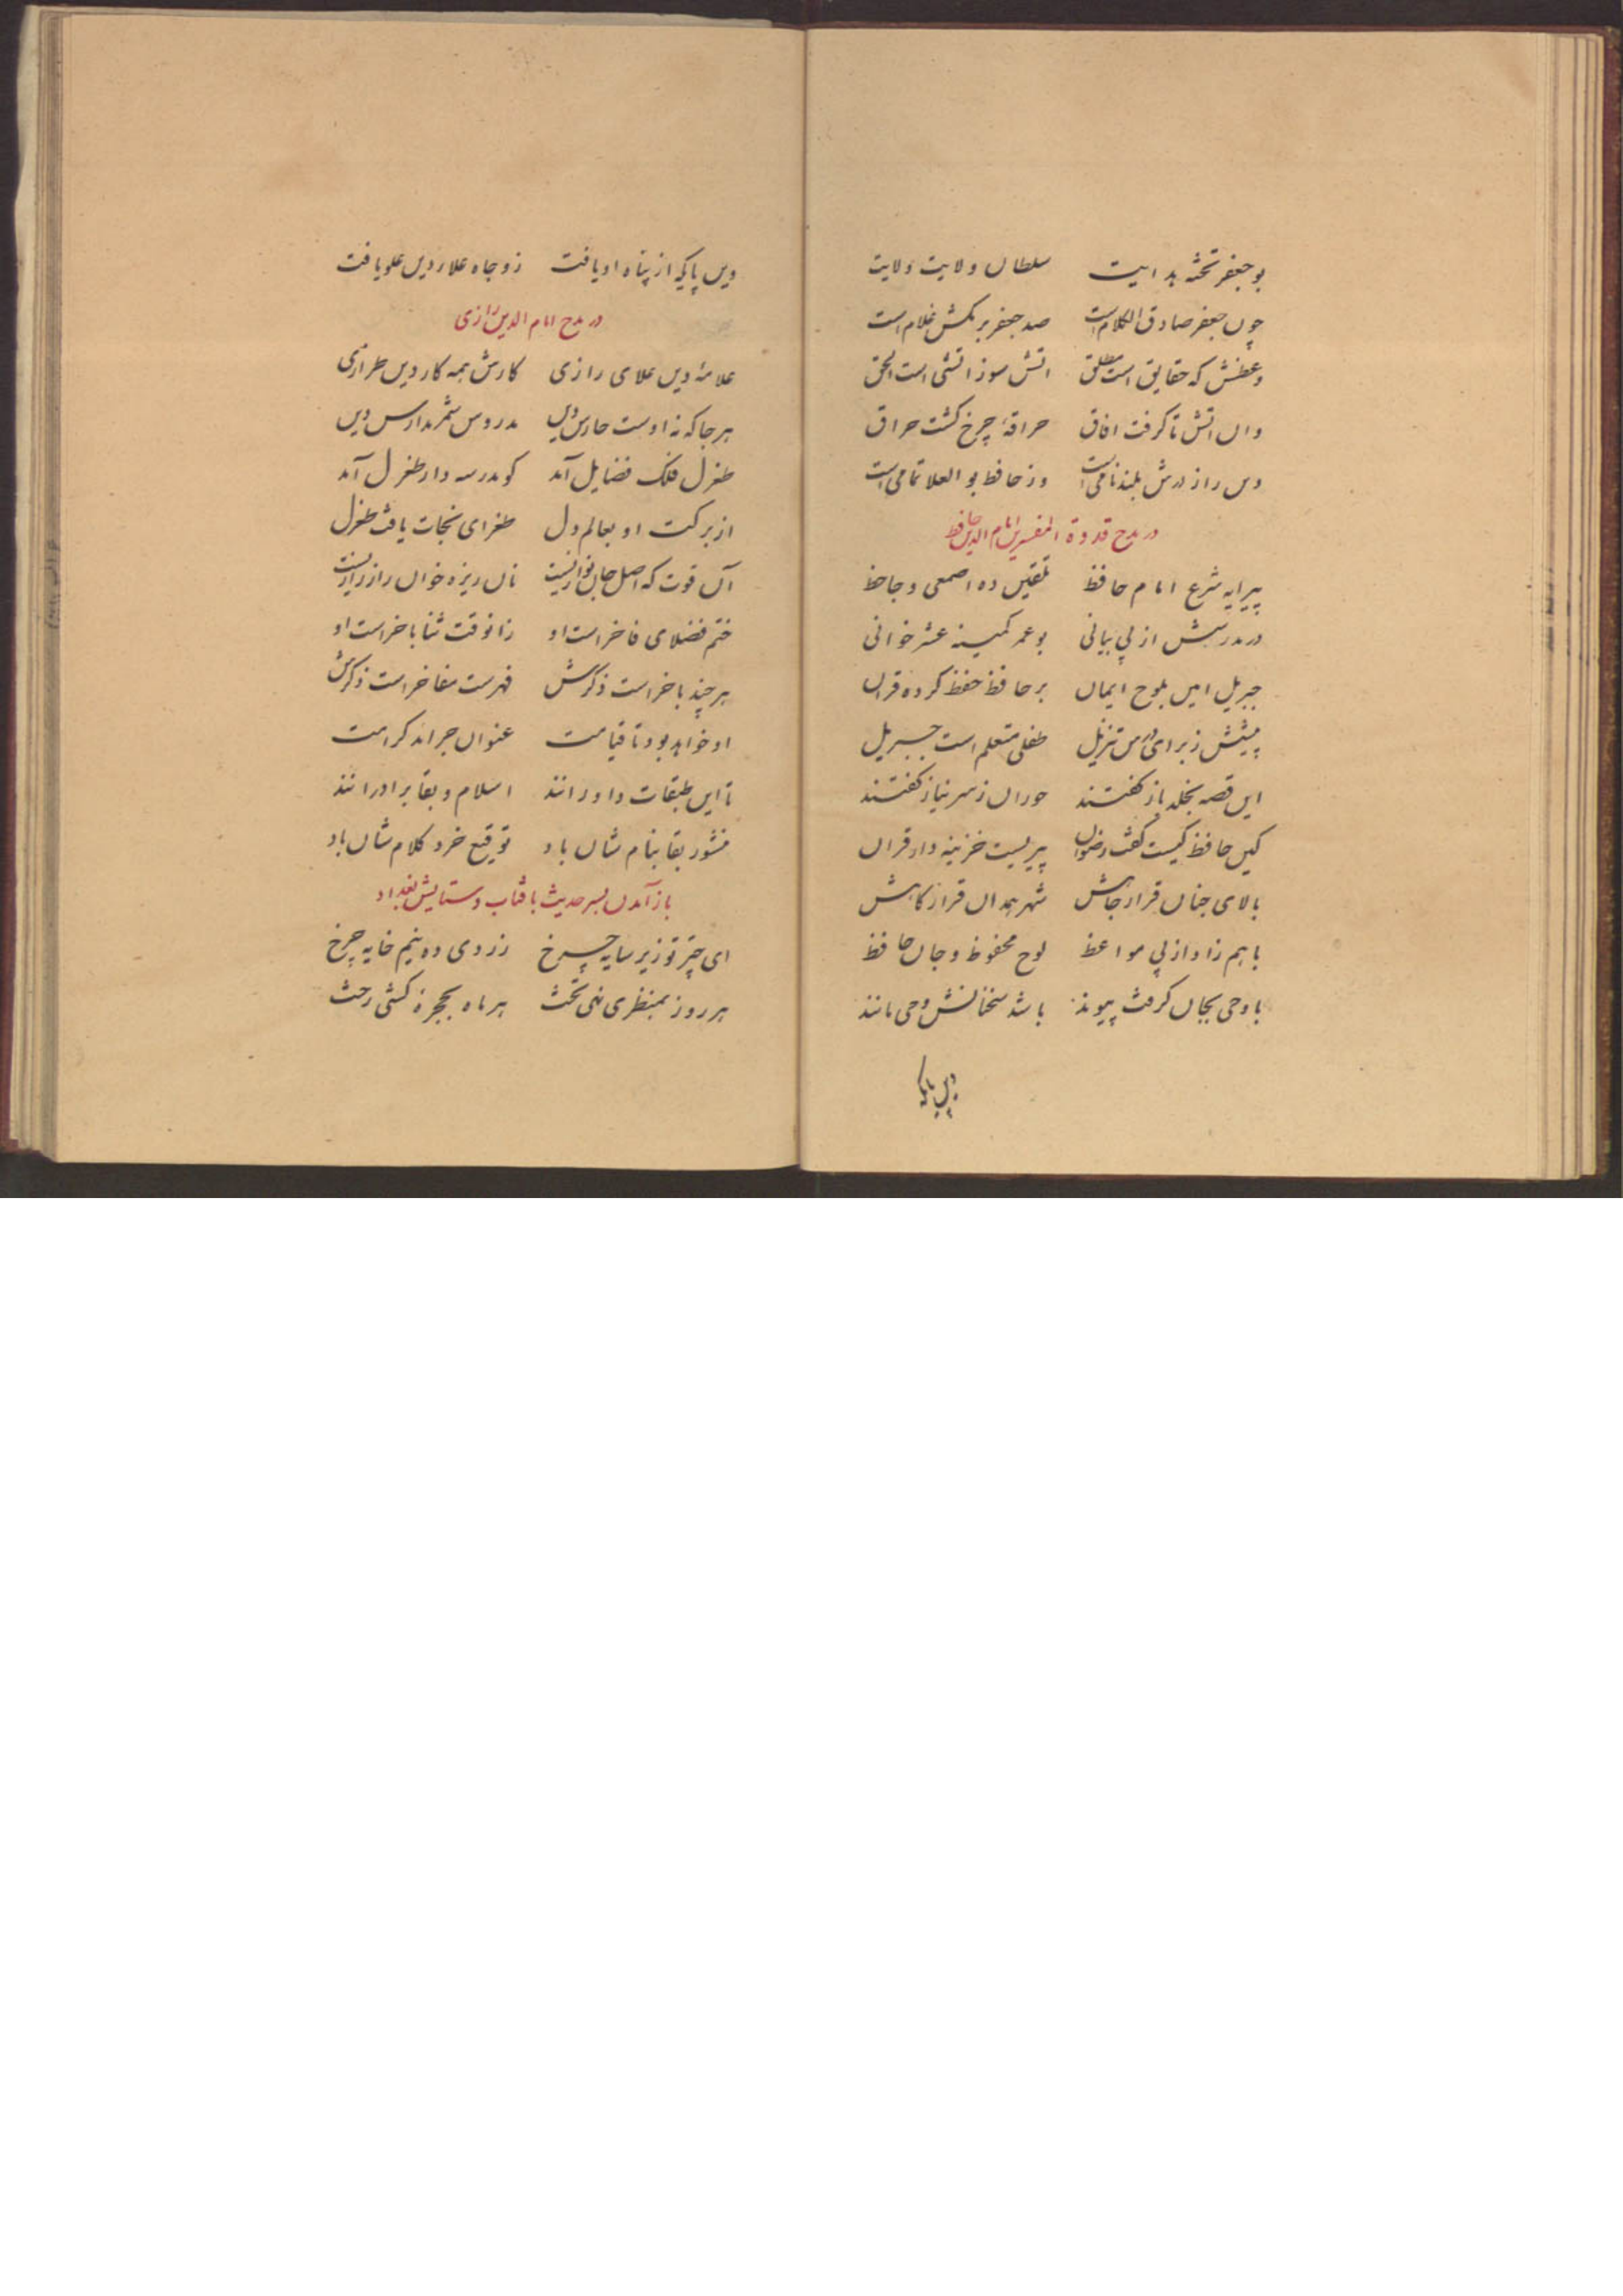 بو جعفر تخته بدایت سلطان ولایت ولایت
چون جعفر صادق الکلام است صد جعفر برمکش غلام است
وعظش که حقایق است مطلق اتش سوز اتشی است الحق
وان اتش تا کرفت افاق حراقهٔ چرخ کشت حراق
دین را ز درش بلند نامی است وز حافظ بو العلا تمامی است
در مدح قدوة المفسرین امام الدین حافظ
پیرایه شرع امام حافظ تلقین ده اصمعی و جاحظ
در مدرسش از پی بیانی بو عمر کمینه عشر خوانی
جبریل امین بلوح ایمان بر حافظ حفظ کرده قران
پیشش ز برای درس تنزیل طفلی متعلم است جبریل
این قصه بخلد باز کفتند حوران ز سر نیاز کفتند
کین حافظ کیست کفت رضوان پیریست خزینه دار قران
بالای جنان قرار جاش شهر همدان قرار کاهش
با هم زاد از پی مواعظ لوح محفوظ و جان حافظ
با وحی بجان کرفت پیوند باشد سخنانش وحی مانند
دین پاکیه
دین پاکی از پناه او یافت زو جاه علاء دین علو یافت
در مدح امام الدین رازی
علامهٔ دین علای رازی کارش همه کار دین طرازی
هر جا که نه اوست حارس دین مدروس شمر مدارس دین
طغرل فلک فضایل آمد کو مدرسه دار طغرل آمد
از برکت او بعالم دل طغرای نجات یافت طغرل
آن قوت که اصل جان نوازیست نان ریزه خوان راز رازیست
ختم فضلای فاخر است او زانوقت ثنا باخر است او
هر چند باخر است ذکرش فهرست مفاخر است ذکرش
او خواهد بود تا قیامت عنوان جراید کرامت
تا این طبقات داورانند اسلام و بقا برادرانند
منشور بقا بنام شان باد توقیع خرد کلام شان باد
باز آمدن بسر حدیث بافتاب و ستایش بغداد
ای چتر تو زیر سایه چرخ زردی ده نیم خایه چرخ
هر روز بمنظری نهی تخت هر ماه بحجره کشی رخت